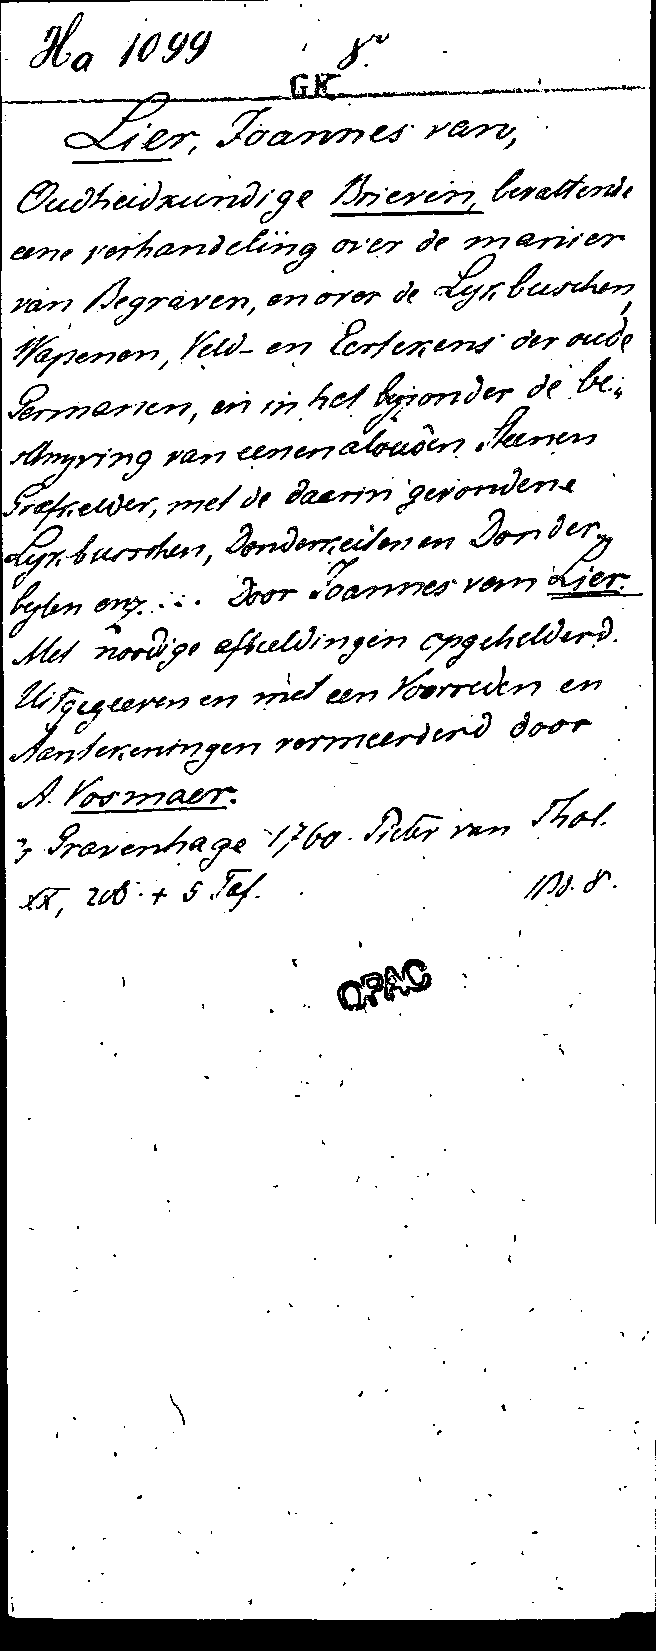 Ha 1099 8°
GK
Lier, Joannes van,
Oudheidkundige Brieven, bevattende
eene verhandeling over de manier
van Begraven, en over de Lykbusschen,
Wapenen, Veld- en Eertekens der oude
Germanen, en in het byzonder de be-
schryving van eenen alouden Steenen
Grafkelder, met de daarin gevondene
Lykbusschen, Donderkeilen en Donder-
bylen enz... Door Joannes van Lier.
Met nodige afbeeldingen opgehelderd.
Uitgegeeven en met een Voorreden en
Aantekeningen vermeerderd door
A. Vosmaer.
's Gravenhage 1760. Pieter van Thol.
XX, 206 + 5 Taf. 8.
OPAC